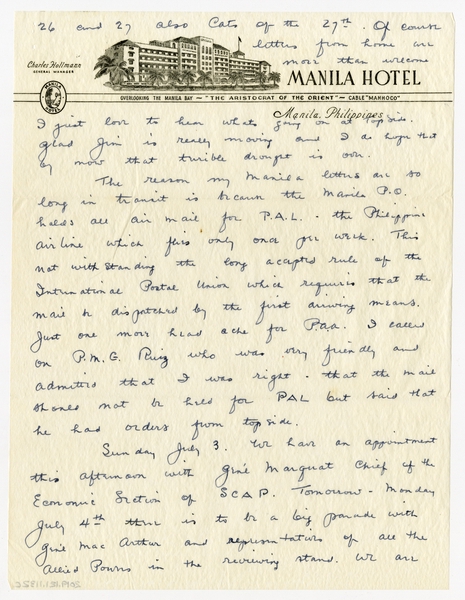 26 and 27 also Cats of the 27th. Of course
letters from home are
more than welcome
Charles Hollmann
GENERAL MANAGER
MANILA HOTEL
OVERLOOKING THE MANILA BAY — "THE ARISTOCRAT OF THE ORIENT" — CABLE "MANHOCO"
Manila, Philippines
I just love to hear whats going on at Topside.
Glad Jim is really moving and I do hope that
by now that turible drought is over.
The reason my Manila letters are so
long in transit is because the Manila P.O.
holds all air mail for P.A.L. - the Philippine
airline which flies only once per week. This
not withstanding the long accepted rule of the
International Postal Union which requires that the
mail be dispatched by the first arriving means.
Just one more head ache for Paa. I called
on P.M.G. Ruiz who was very friendly and
admitted that I was right - that the mail
should not be held for PAL but said that
he had orders from topside.
Sunday July 3. We have an appointment
this afternoon with Gen'l Marquat Chief of the
Economic Section of SCAP. Tomorrow - Monday
July 4th there is to be a big parade with
Gen'l Mac Arthur and representatives of all the
Allied Powers in the reviewing stand. We are